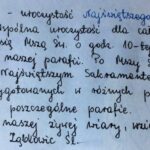 - uroczystość Najświętszego
wspólna uroczystość dla cał
się Mszą Św. o godz. 10-te
naszej parafii. Po Mszy Ś
Najświętszym Sakramente
ygotowanych w różnych p
poszczególne parafie.
naszej żywej wiary, wzię
Ząbkowic Śl.